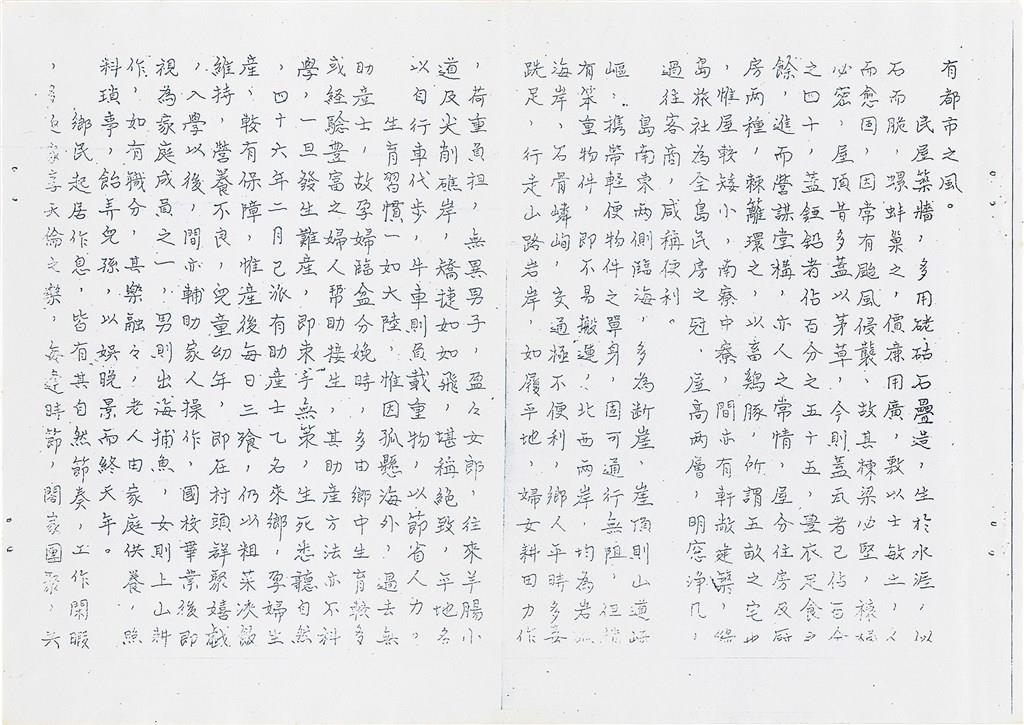 有都市之風。
民屋築牆，多用硓𥑮石疊造，生於水涯，似
石而脆，螺蚌巢之，價廉用廣，敷以士敏土，久
而愈固，因常有颱風侵襲，故其棟梁必堅，椽桷
必密，屋頂昔多蓋以茅草，今則蓋瓦者已佔百分
之四十，蓋鉛者佔百分之五十五，豐衣足食之
餘，進而營謀堂構，亦人之常情，屋分住房及厨
房两種，棘籬環之，以畜鷄豚，所謂五畝之宅也
，惟屋較矮小，南寮中寮，間亦有軒敞建築，
島旅社為全島民房之冠，屋高两層，明窓浄几，
過往客商，咸稱便利。
島南東两側臨海，多為断崖，崖頂則山道崎
嶇，携帶輕便物件之單身，固可通行無阻，但
有笨重物件，即不易搬運，北西两岸，均為岩
海岸，石骨嶙峋，交通極不便利，鄉人平時多喜
跣足，行走山路岩岸，如履平地，婦女耕田力作
，荷重負担，無異男子，盈々女郎，往來羊腸小
道及尖削礁岸，矯捷如如飛，堪稱絕致，平地多
以自行車代步，牛車則負載重物，以節省人力，
生育習慣一如大陸，惟因孤懸海外，過去無
助産士，故孕婦臨盆分娩時，多由鄉中生育較多
或経驗豊富之婦人帮助接生，其助産方法亦不科
學，一旦發生難産，即束手無策，生死悉聽自然
，四十六年二月已派有助産士乙名來鄉，孕婦生
産，較有保障，惟産後每日三飱，仍以粗菜淡飯
維持，營養不良，兒童幼年，即在村頭群聚嬉戲
，入學以後，間亦輔助家人操作，國校畢業後即
視為家庭成員之一，男則出海捕魚，女則上山耕
作，如有職分，其樂融々，老人由家庭供養，照
料瑣事，飴弄兒孫，以娯晚景而終天年。
鄉民起居作息，皆有其自然節奏，工作閑暇
，多近家享天倫之樂，每逢時節，閤家團聚，共